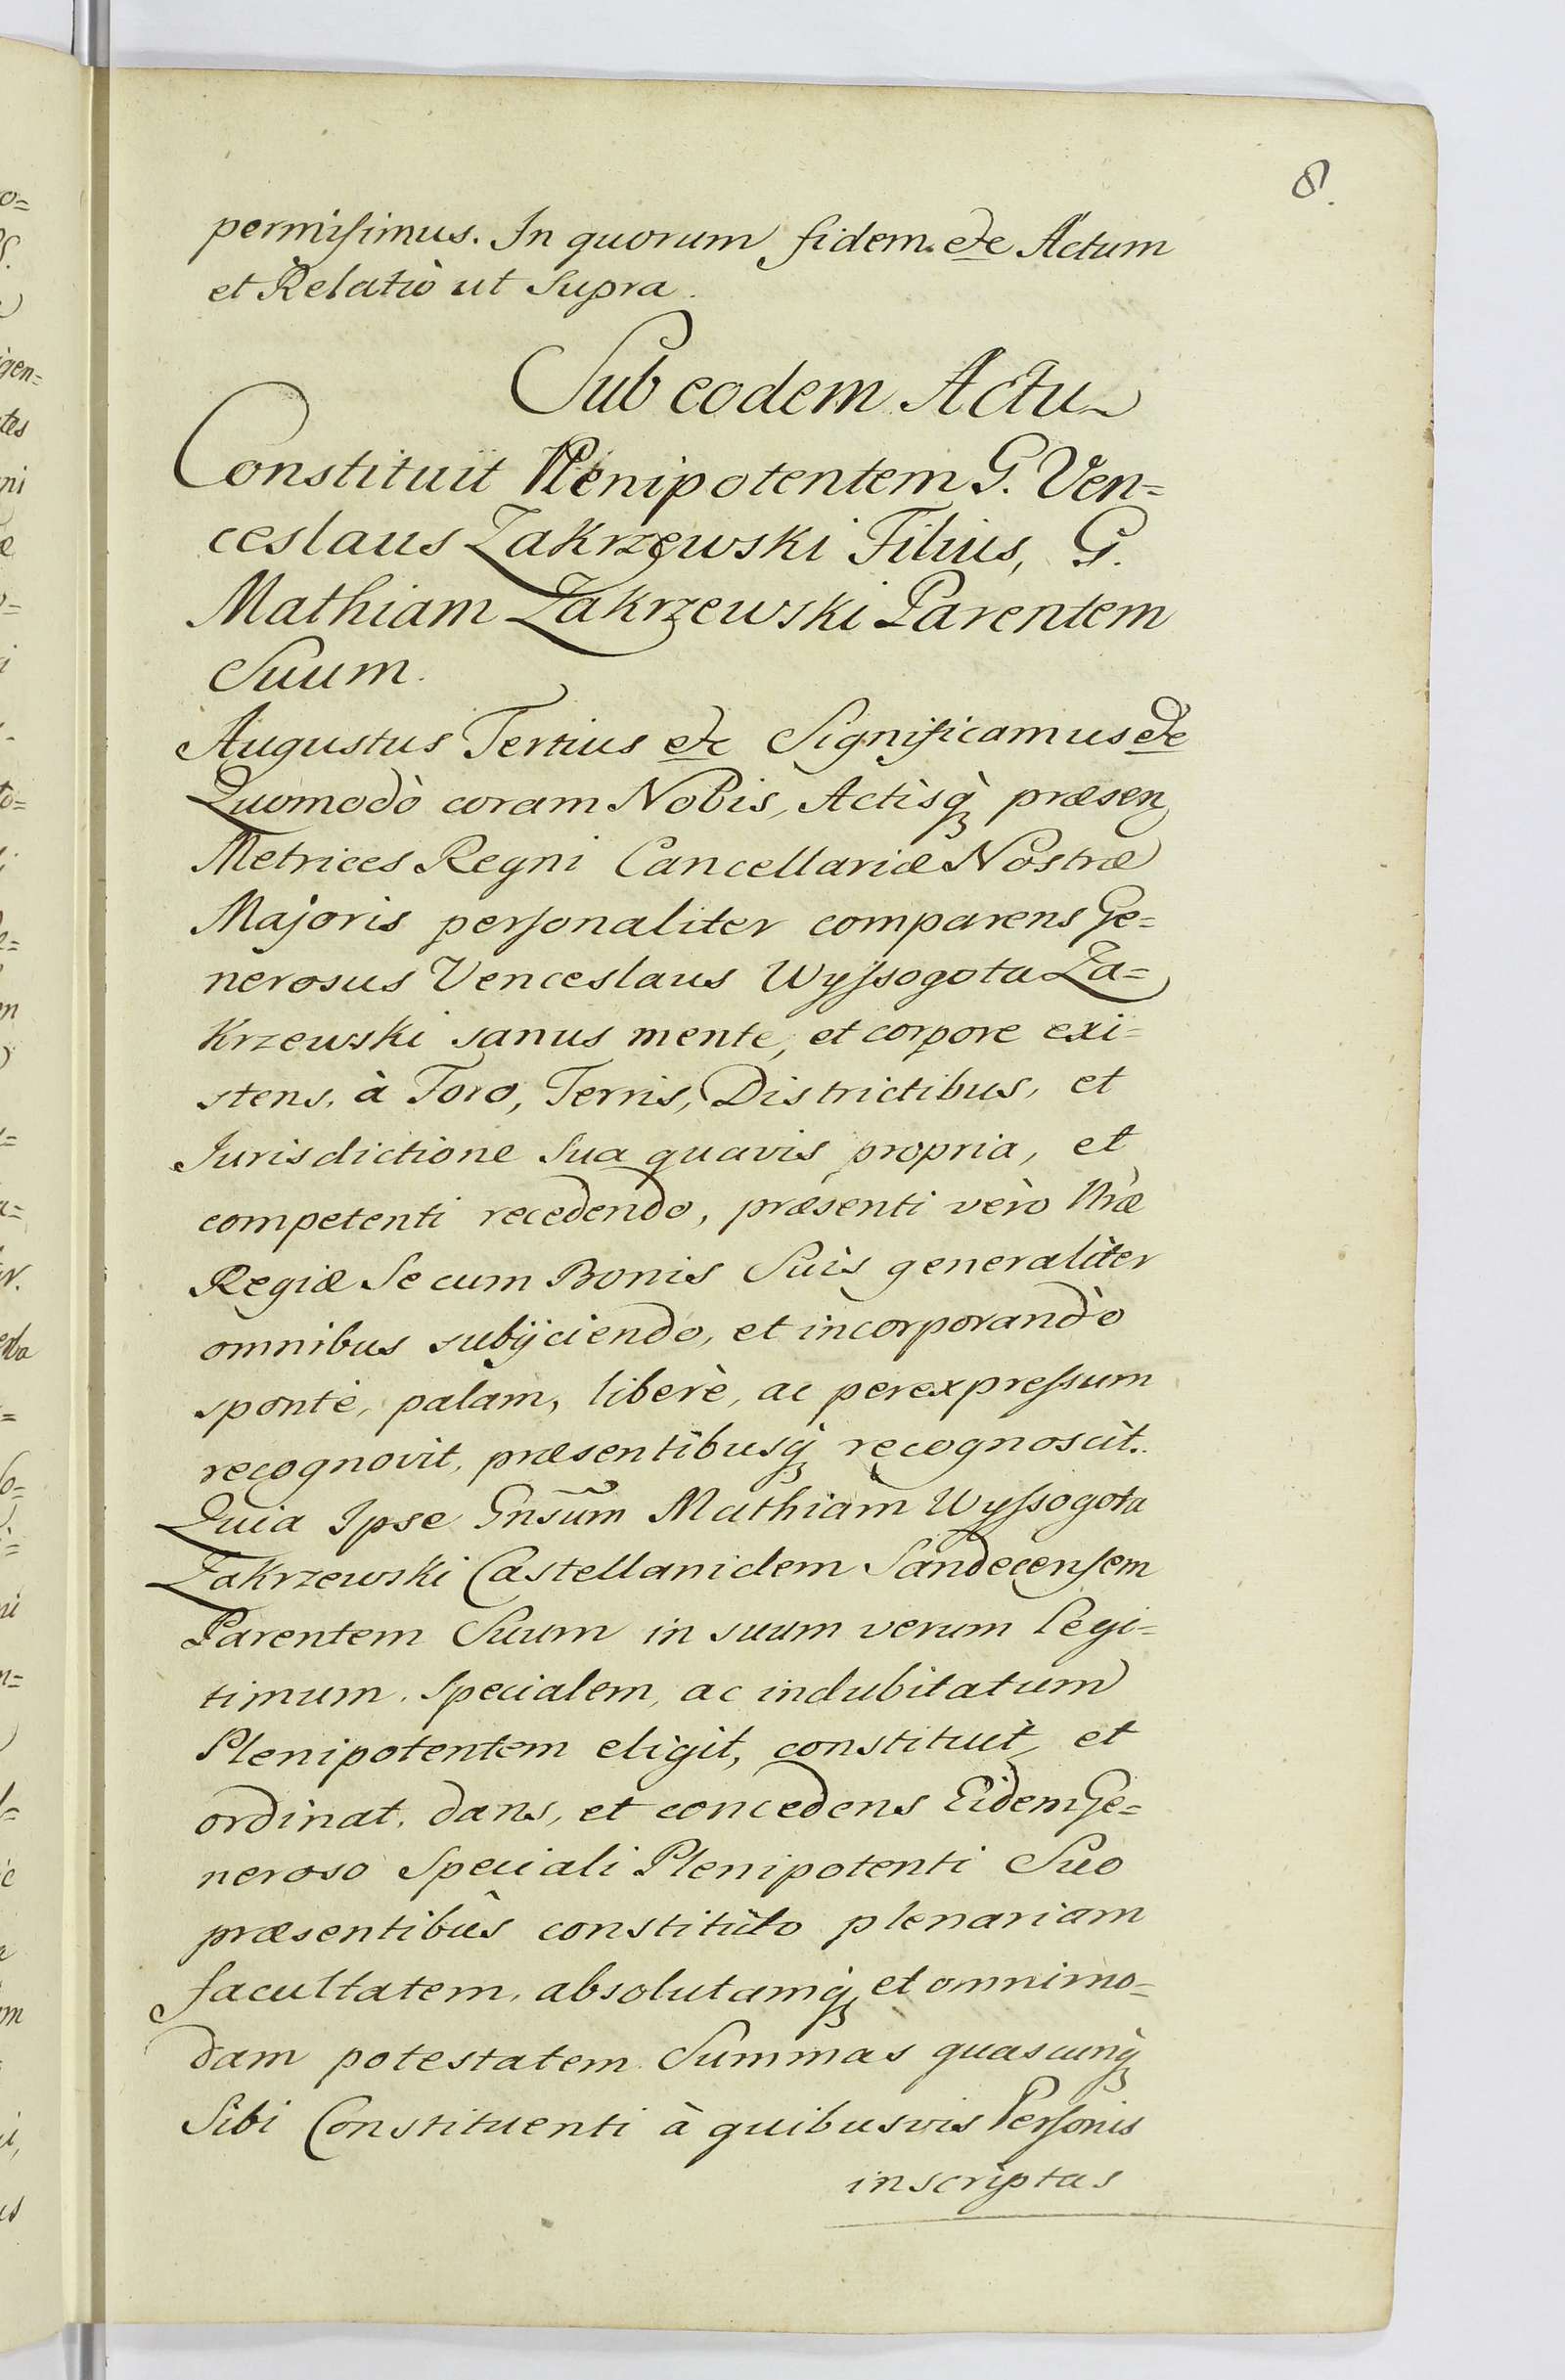 8.
permiſimus. In quorum fidem etc Actum
et Relatiò ut Supra.
Sub eodem Actu
Constituit Plenipotentem G. Ven=
ceslaus Zakrzewski Filius, G.
Mathiam Zakrzewski Parentem
Suum.
Augustus Tertius etc Significamus etc
Quomodò coram Nobis, Actisq́ præsen
Metrices Regni Cancellariæ Nostræ
Majoris perſonaliter comparens Ge=
nerosus Venceslaus Wyſsogota Za=
krzewski sanus mente, et corpore exi=
stens, à Foro, Terris, Districtibus, et
Jurisdictione Sua quavis propria, et
competenti recedendo, præsenti verò Nræ
Regiæ Se cum Bonis Suis generaliter
omnibus subijciendo, et incorporando
spontè, palam, liberè, ac perexpreſsum
recognovit, præsentibusq́ recognoscit.
Quia Ipse Gnsum Mathiam Wyſsogota
Zakrzewski Castellanidem Sandecenſem
Parentem Suum in suum verum legi=
timum, Specialem, ac indubitatum
Plenipotentem eligit, constituit, et
ordinat, dans, et concedens Eidem Ge=
neroso Speciali Plenipotenti Suo
præsentibus constituto plenariam
facultatem, absolutamq́ et omnimo=
dam potestatem Summas quascunq́
Sibi Constituenti à quibusvis Perſonis
inscriptas